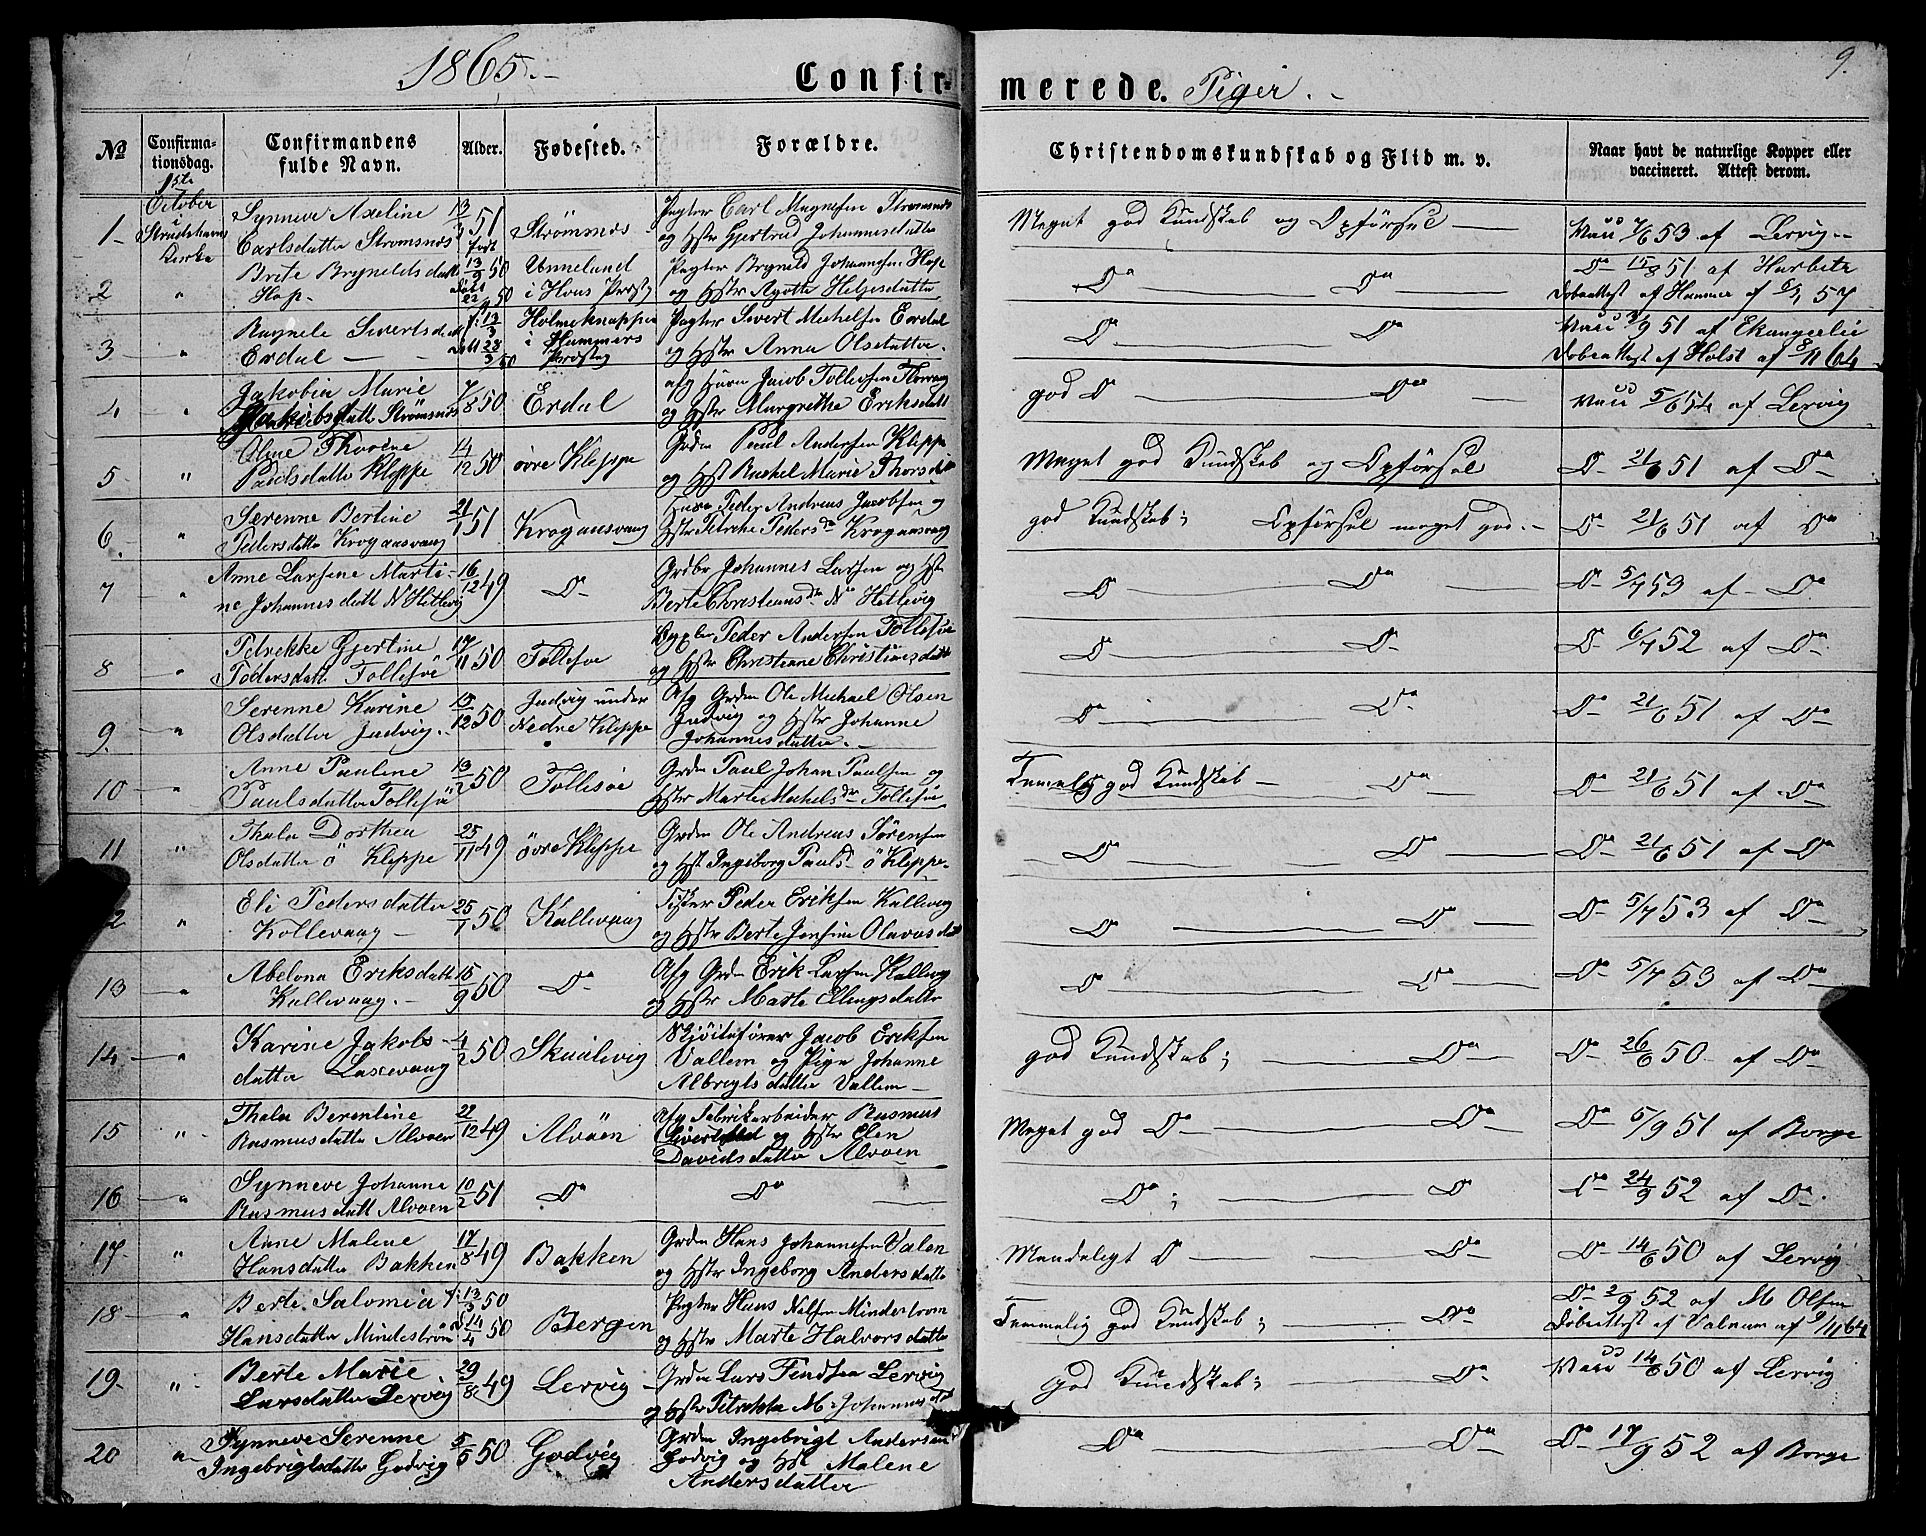 1865.
Confirmerede. Piger.
9.
No
Confirma-
tionsdag.
Confirmandens
fulde Navn.
Alder.
Fødested.
Forældre.
Christendomskundskab og Flid m. v.
Naar havt de naturlige Kopper eller
vaccineret. Attest derom.
1ste
October
i
Kirke
1
Synneve Axeline
Carlsdatter Strømsnes
13 51
Strømsnes
Pagter Carl Magnesen Strømsnes
og Hstr Gjertrud Johannesdatter
Meget god Kundskab og Opførsel
Vacc 7/6 53 af Lervig
2
Brite Brynelds datt
Hop.
født 13/9 50
døbt 22/9 50
Unneland
i Hous Præstg
Pagter Bryneld Johannesen Hop
og Hstr Agotte Helgesdatter
Do Do
Do 15/8 51 af Harbitz
Døbeattest af Hammer af 57
3
Ragnele Sivertsdatt
Erdal
f: 13/3
døbt 28/3 50
Holmeknappen
i Hammers
Præsteg
Pagter Sivert Michelsen Erdal
og Hstr Anna Olsdatter.
Do Do
Vacc 9 51 af Ekangerlie
Døbeattest af Holst af 8/11 64
4
Jakobin Marie
Jakobsdatte Strömsnes
7/8 50
Erdal
afg Huus Jacob Tollevsen Florvaag
og Hstr Margrethe Eriksdatt
god Do Do
Vacc 5/6 54 af Lervig
5
Oline Thorine
Paulsdatte Kleppe
14/12 50
øvre Kleppe
Grdm Paul Andersen Kleppe
og Hst Rachel Marie Thorsdtr
Meget god Kundskab og Opførsel
Do 21/6 51 af Do
6.
Serenne Bertine
Pedersdatte Krogaasvaag
21/1 51
Krogaasvaag
Huusm Peder Andreas Jacobsen og
Hstr Petrike Peders dtr Krogaasvaag
god Kundskab; Opførsel meget god.
Do 21/6 51 af Do
7
Anne Larsene Marti-
ne Johannesdatt N Hetlevig
16/12 49
Do
Grdbr Johannes Larsen og Hst
Berte Christians dtr No Hetlevig
Do Do
Do 5/7 53 af Do
8
Petrikke Gjertine
Pedersdatt Follesøe
17/11 50
Follesøe
Peder Andersen Follesøe
og Hstr Christiane Christiansdatt
Do Do
Do 6/7 52 af Do
9.
Serenne Karine
Olsdatter Judvig.
15/12 50
Judvig under
Nedre Kleppe
Afg Grdm Ole Michael Olsen
Judvig og Hstr Johanne
Johannesdatter.
Do Do
Do 21/6 51 af Do
10
Anne Pauline
Paulsdatter Follesöe
13/7 50
Follesøe
Grdm Paul Johan Paulsen og
Hstr Marte Michels dtr Follesøe
Temmelig god Kundskab Do
Do 21/6 51 af Do
11
Thala Dorthea
Olsdatter ö Kleppe
25/11 49
övre Kleppe
Grdm Ole Andreas Sørensen
og Hst Ingeborg Paulsd ö Kleppe
Do Do
Do 21/6 51 af Do
2
Eli Pedersdatter
Kollevaag
25/1 50
Kallevaag
Peder Eriksen Kallevaag
og Hstr Berte Jonsine Olavusdatt
Do Do
Do 5/7 53 af Do
13
Abelona Eriksdatt
Kallevaag.
15/9 50
Do
Afg Grdm Erik Larsen Kallevg
og Hstr Marte Ellingsdatte
Do Do
Do 5/7 53 af Do
14
Karine Jakobs-
datter Laxevaag
4/2 50
Skaalevig
Skjöitefører Jacob Eriksen
Vallem og Pige Johanne
Albregtsdatter Vallem
god Kundskab; Do
Do 26/6 50 af Do
15
Thala Berentine
Rasmusdatte Alvøen
22/12 49
Alvöen
Afg Fabrikarbeider Rasmus
og Hstr Elen
Davidsdatter Alvøen
Meget god Do Do
Do 5/9 51 af Borge
16
Synneve Johanne
Rasmusdatt Alvøen
10/2 51
Do
Do
Do; Do
Do 24/9 52 af Do.
17
Anne Malene
Hansdatter Bakken
17/8 49
Bakken
Grdm Hans Johannesen Valen
og Hstr Ingeborg Andersdatte
Maadeligt Do Do
Do 14/6 50 af Lervig
18
Berte Salomia
Hansdatter Mindeström
f: 13/3 50
d 14/4 50
Bergen
Pagter Hans Nilsen Mindestrøm
og Hstr Marte Halvorsdatter
Temmelig god Kundskab; Do
Do 2/9 52 af M Olsen
Døbeattest af Valeum af 9/11 64
19.
Berte Marie
Larsdatter Lervig
29/8 49
Lervig
Grdm Lars Findsen Lervig
og Hstr Petrikke M. Johannesdtr
god Kundskab; Do
Vacc 14/6 50 af Lervig
20
Synneve Serenne
Ingebrigtsdatte Godvig
5/5 50
Godvig
Grdm Ingebrigt Andersen
Godvig og Hst Malene
Andersdatter
Do Do
Do 17/9 52 af Borge